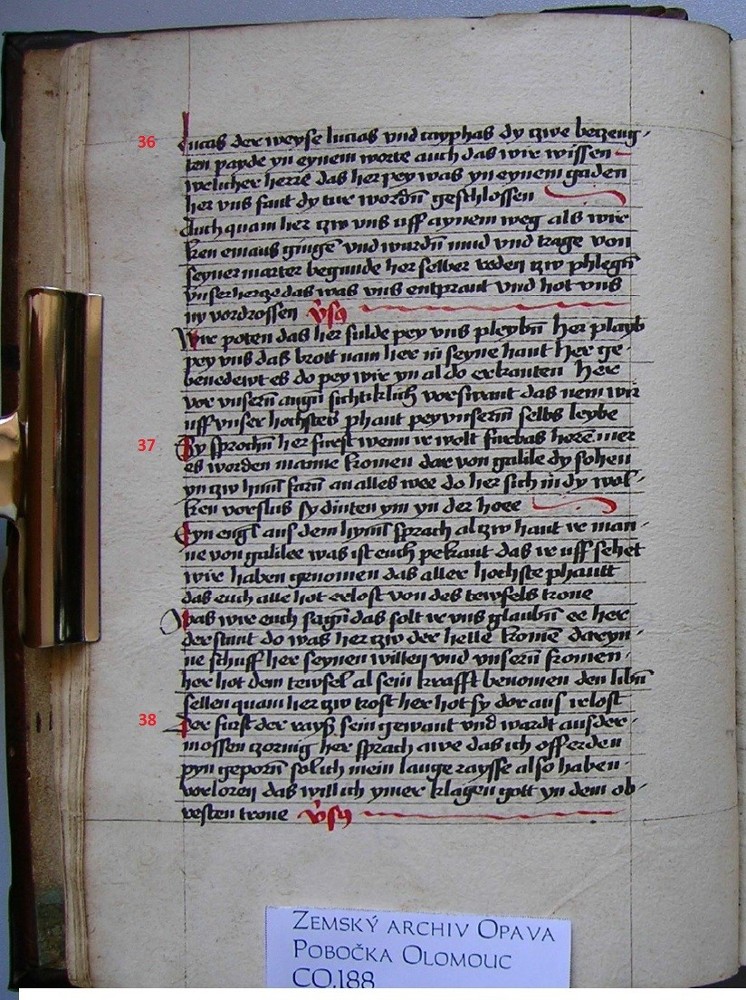 36
lucas der weyse lucias vnd cayphas dy czwe beczeug-
ten payde yn eynem worte auch das wir wissen
welicher herre das her pey was yn eynem gaden
her vns fant dy tur wordn̄ geschlossen
Auch quam her czw vns uff aynem weg als wir
ken emaus gingē vnd wurdn̄ mud vnd trage von
seyner marter begunde her selber reden czw phlegn̄
vnser hercze das was vns entprant vnd hot vns
ny vordrossen v̊sq
Wir poten das her sulde pey vns pleybn̄ her playb
pey vns das brott nam her in seyne hant her ge-
benedewt es do pey wir yn al do erkanten her
vor vnsern̄ augn̄ sichtiklich vorswant das nem wir
uff vnser hochstes phant pey vnserm̄ selbs leybe
37
Sy sprochn̄ her furst wenn ir wolt furbas horen̄ mer
es worden manne komen dar von galile dy sohen
yn czw himl̄ farn̄ an alles wee do her sich in dy wol-
ken vorslus sy dinten ym yn der hoee
Eyn engl̄ aus dem hyml̄ sprach al czw hant ir man-
ne von galilee was ist euch pekant das ir uff sehet
wir haben genomen das aller hochste phantt
das euch alle hot erlost von des tewfels trone
Was wir euch sagn̄ das solt ir vns glaubn̄ ee her
derstunt do was her czw der helle komē dareyn-
ne schuff her seynen willen vnd vnsern̄ fromen-
her hot dem tewfel al sein krafft benomen den libn̄
sellen quam her czw trost her hot sy dor aus irlost
38
Der furst der rayß sein gewant vnd wardt aus der-
mossen czornig her sprach awe das ich off erden
pyn geporn̄ sol ich mein lange raysse also haben-
vorloren das will ich ymer klagen gott yn dem ob-
resten trone v̊sq
Zemský archiv Opava
Pobočka Olomouc
CO.188